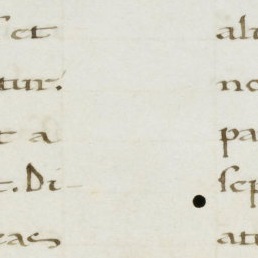 et
tur.
t a
t. Di-
eas
alu
no
pa
sep
atu